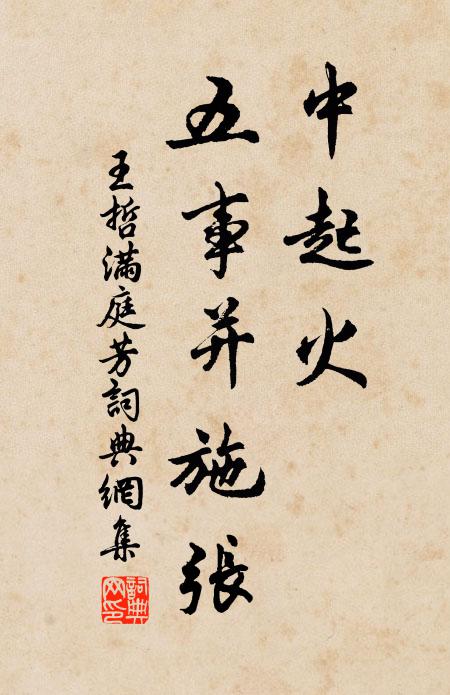 中起火
五事并施張
王哲滿庭芳詞典網集
詞典
网印